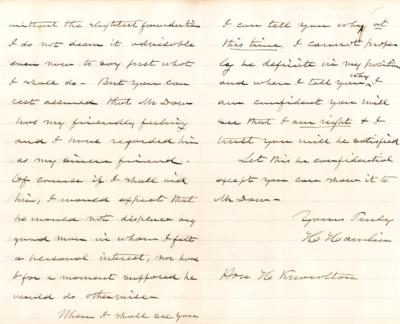 without the slightest foundation
I do not deem it advisable
even now to say just what
I shall do - But you can
rest assured that Mr Daw
has my friendly feeling
and I have regarded him
as my sincere friend -
Of course if I shall aid
him, I would expect that
he would not displace any
good man in whom I felt
a personal interest, nor have
I for a moment supposed he
would do otherwise -
When I shall see you
I can tell you why at
this time, I cannot proper
ly be definite in my position
and when I tell you why, I
am confident you will
see that I am right & I
trust you will be satisfied
Let this be confidential
except you can show it to
Mr Daw -
Yours Truly
H Hamlin
Hon H Knowlton